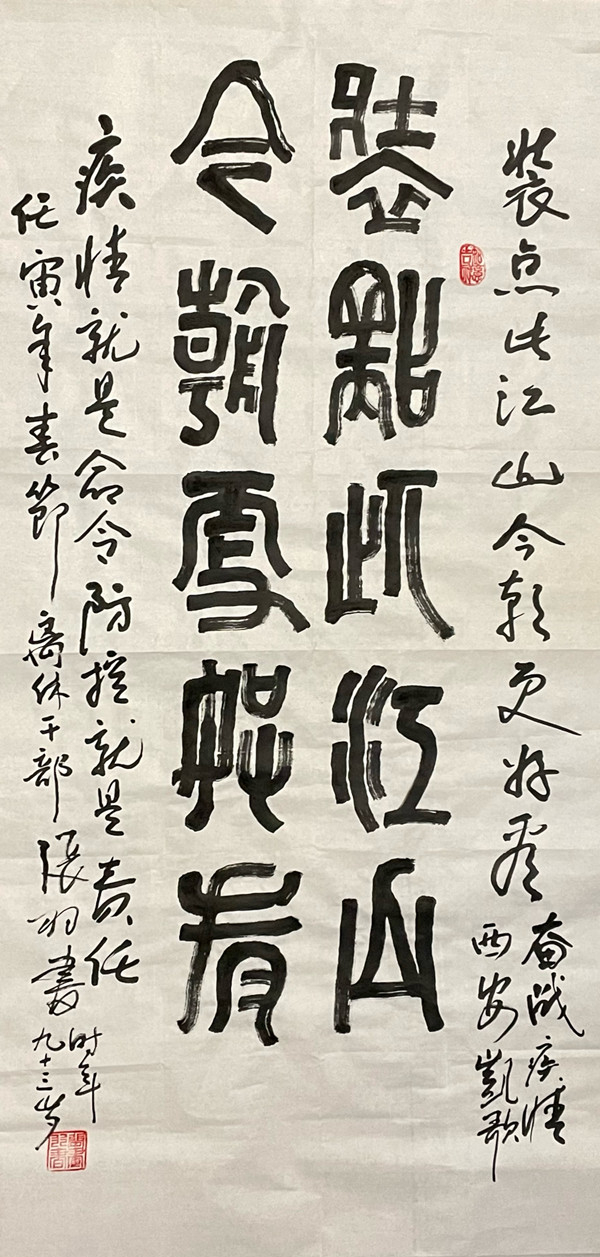 装点此江山今朝更好看
奋战疫情
西安凱歌
裝點此江山
今朝更好看
疫情就是命令防控就是责任
任寅年春節离休干部張羽書
时年
九十三岁